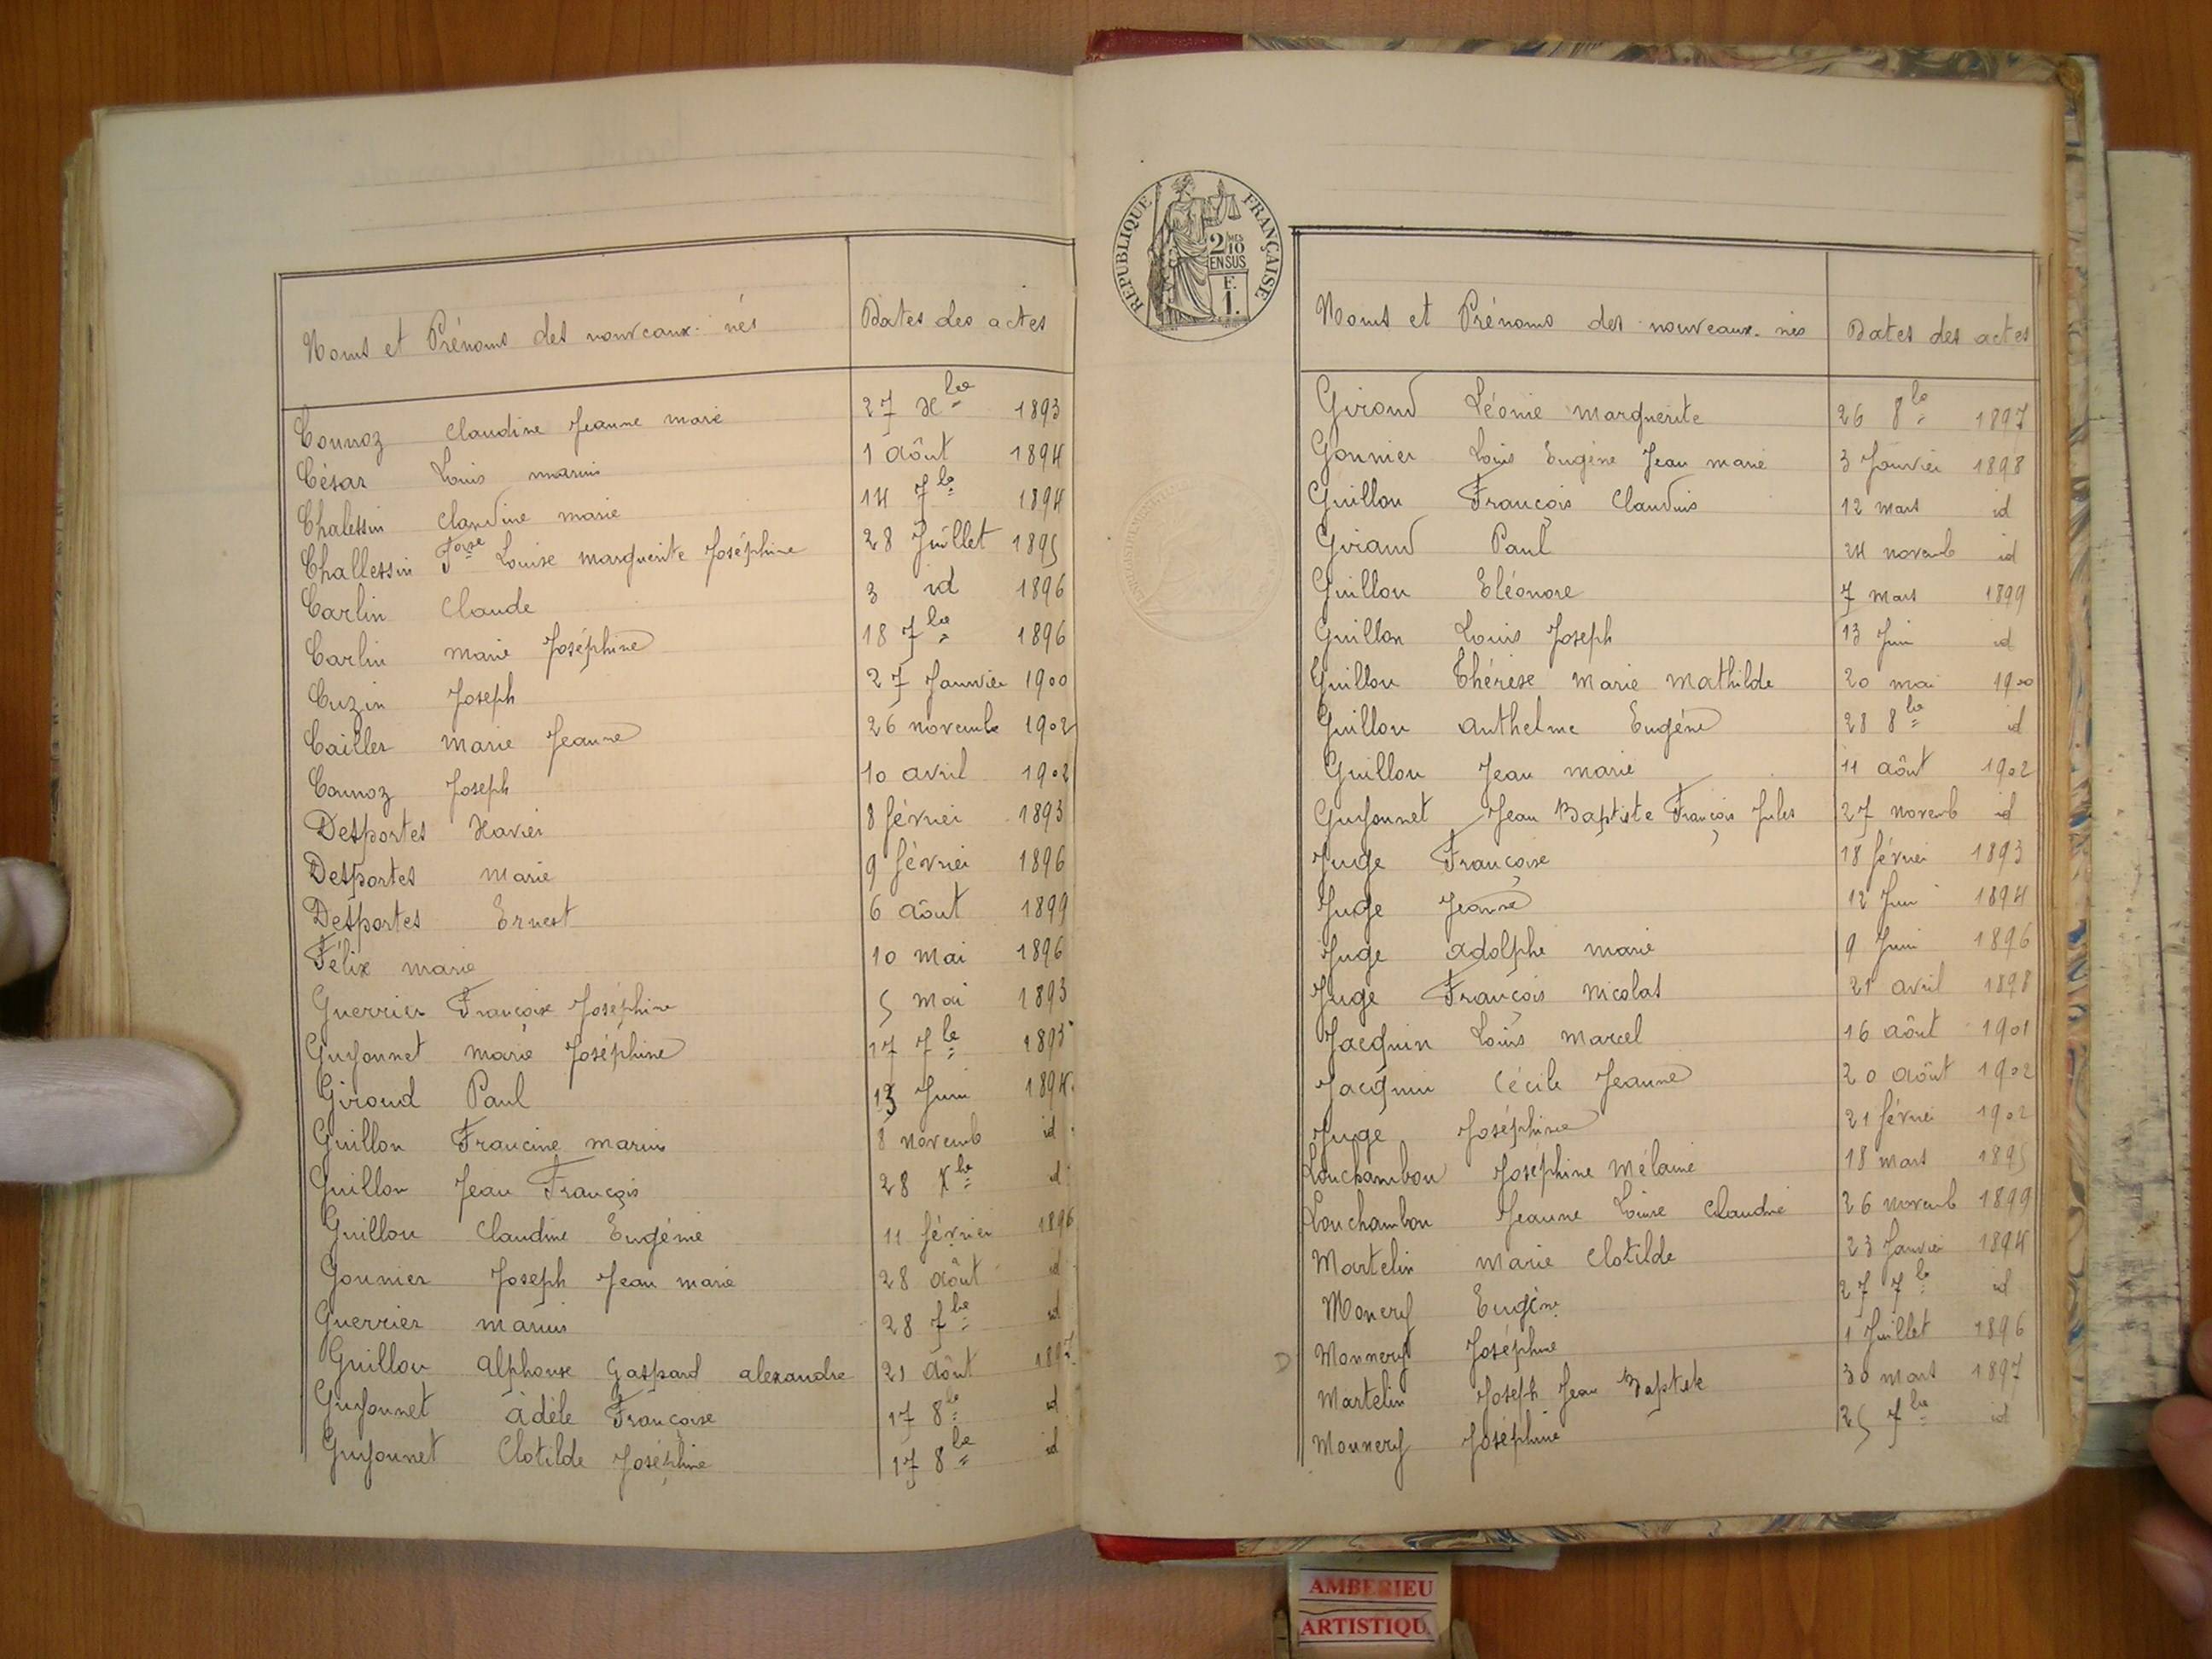 Noms et Prénoms des nouveaux-nés Dates des actes
Connoz Claudine Jeanne marie 27 Xbre 1893
César Louis marius 1 août 1894
Chalessin Claudine marie 14 7bre 1894
Challessin Foise Louise marguerite Joséphine 28 Juillet 1895
Carlin Claude 3 id 1896
Carlin marie Joséphine 18 7bre 1896
Cuzin Joseph 27 Janvier 1900
Cailler Marie Jeanne 26 novembre 1902
Connoz Joseph 10 avril 1902
Desportes Xavier 8 février 1893
Desportes Marie 9 février 1896
Desportes Ernest 6 août 1899
Félix marie 10 mai 1896
Guerrier Françoise Joséphine 5 mai 1893
Guyonnet marie Joséphine 17 7bre 1893
Giroud Paul 13 Juin 1894
Guillon Francine marius 8 novemb id
Guillon Jean François 28 Xbre id
Guillon Claudine Eugénie 11 février 1896
Gonnier Joseph Jean marie 28 août id
Guerrier marius 28 7bre id
Guillon Alphonse Gaspard alexandre 21 août 1897
Guyonnet Adèle Françoise 17 8bre id
Guyonnet Clotilde Joséphine 17 8bre id
REPUBLIQUE FRANÇAISE
2/10 MES
EN SUS
F.
1.
Noms et Prénoms des nouveaux-nés Dates des actes
Giroud Léonie Marguerite 26 8bre 1897
Gonnier Louis Eugène Jean marie 3 Janvier 1898
Guillon François Claudius 12 mars id
Giraud Paul 24 novemb id
Guillon Eléonore 7 mars 1899
Guillon Louis Joseph 13 Juin id
Guillon Thérèse Marie Mathilde 20 mai 1900
Guillon Anthelme Eugène 28 8bre id
Guillon Jean marie 11 août 1902
Guyonnet Jean Baptiste François Jules 27 novemb id
Juge Françoise 18 février 1893
Juge Jeanne 12 Juin 1894
Juge Adolphe marie 9 Juin 1896
Juge François Nicolas 21 avril 1898
Jacquin Louis Marcel 16 août 1901
Jacquin Cécile Jeanne 20 août 1902
Juge Joséphine 21 février 1902
Louchambon Joséphine Mélanie 18 mars 1895
Louchambon Jeanne Louise Claudine 26 novemb 1899
Martelin Marie Clotilde 23 Janvier 1894
Monery Eugène 27 7bre id
Monnery Joséphine 1 Juillet 1896
Martelin Joseph Jean Baptiste 30 mars 1897
Monnery Joséphine 25 7bre id
AMBERIEU
ARTISTIQU